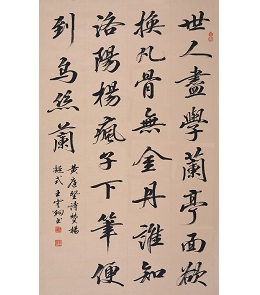 世人盡學蘭亭面欲
换凡骨無金丹誰知
洛陽楊瘋子下筆便
到烏絲蘭
黄庭堅詩赞楊
凝式王雲书